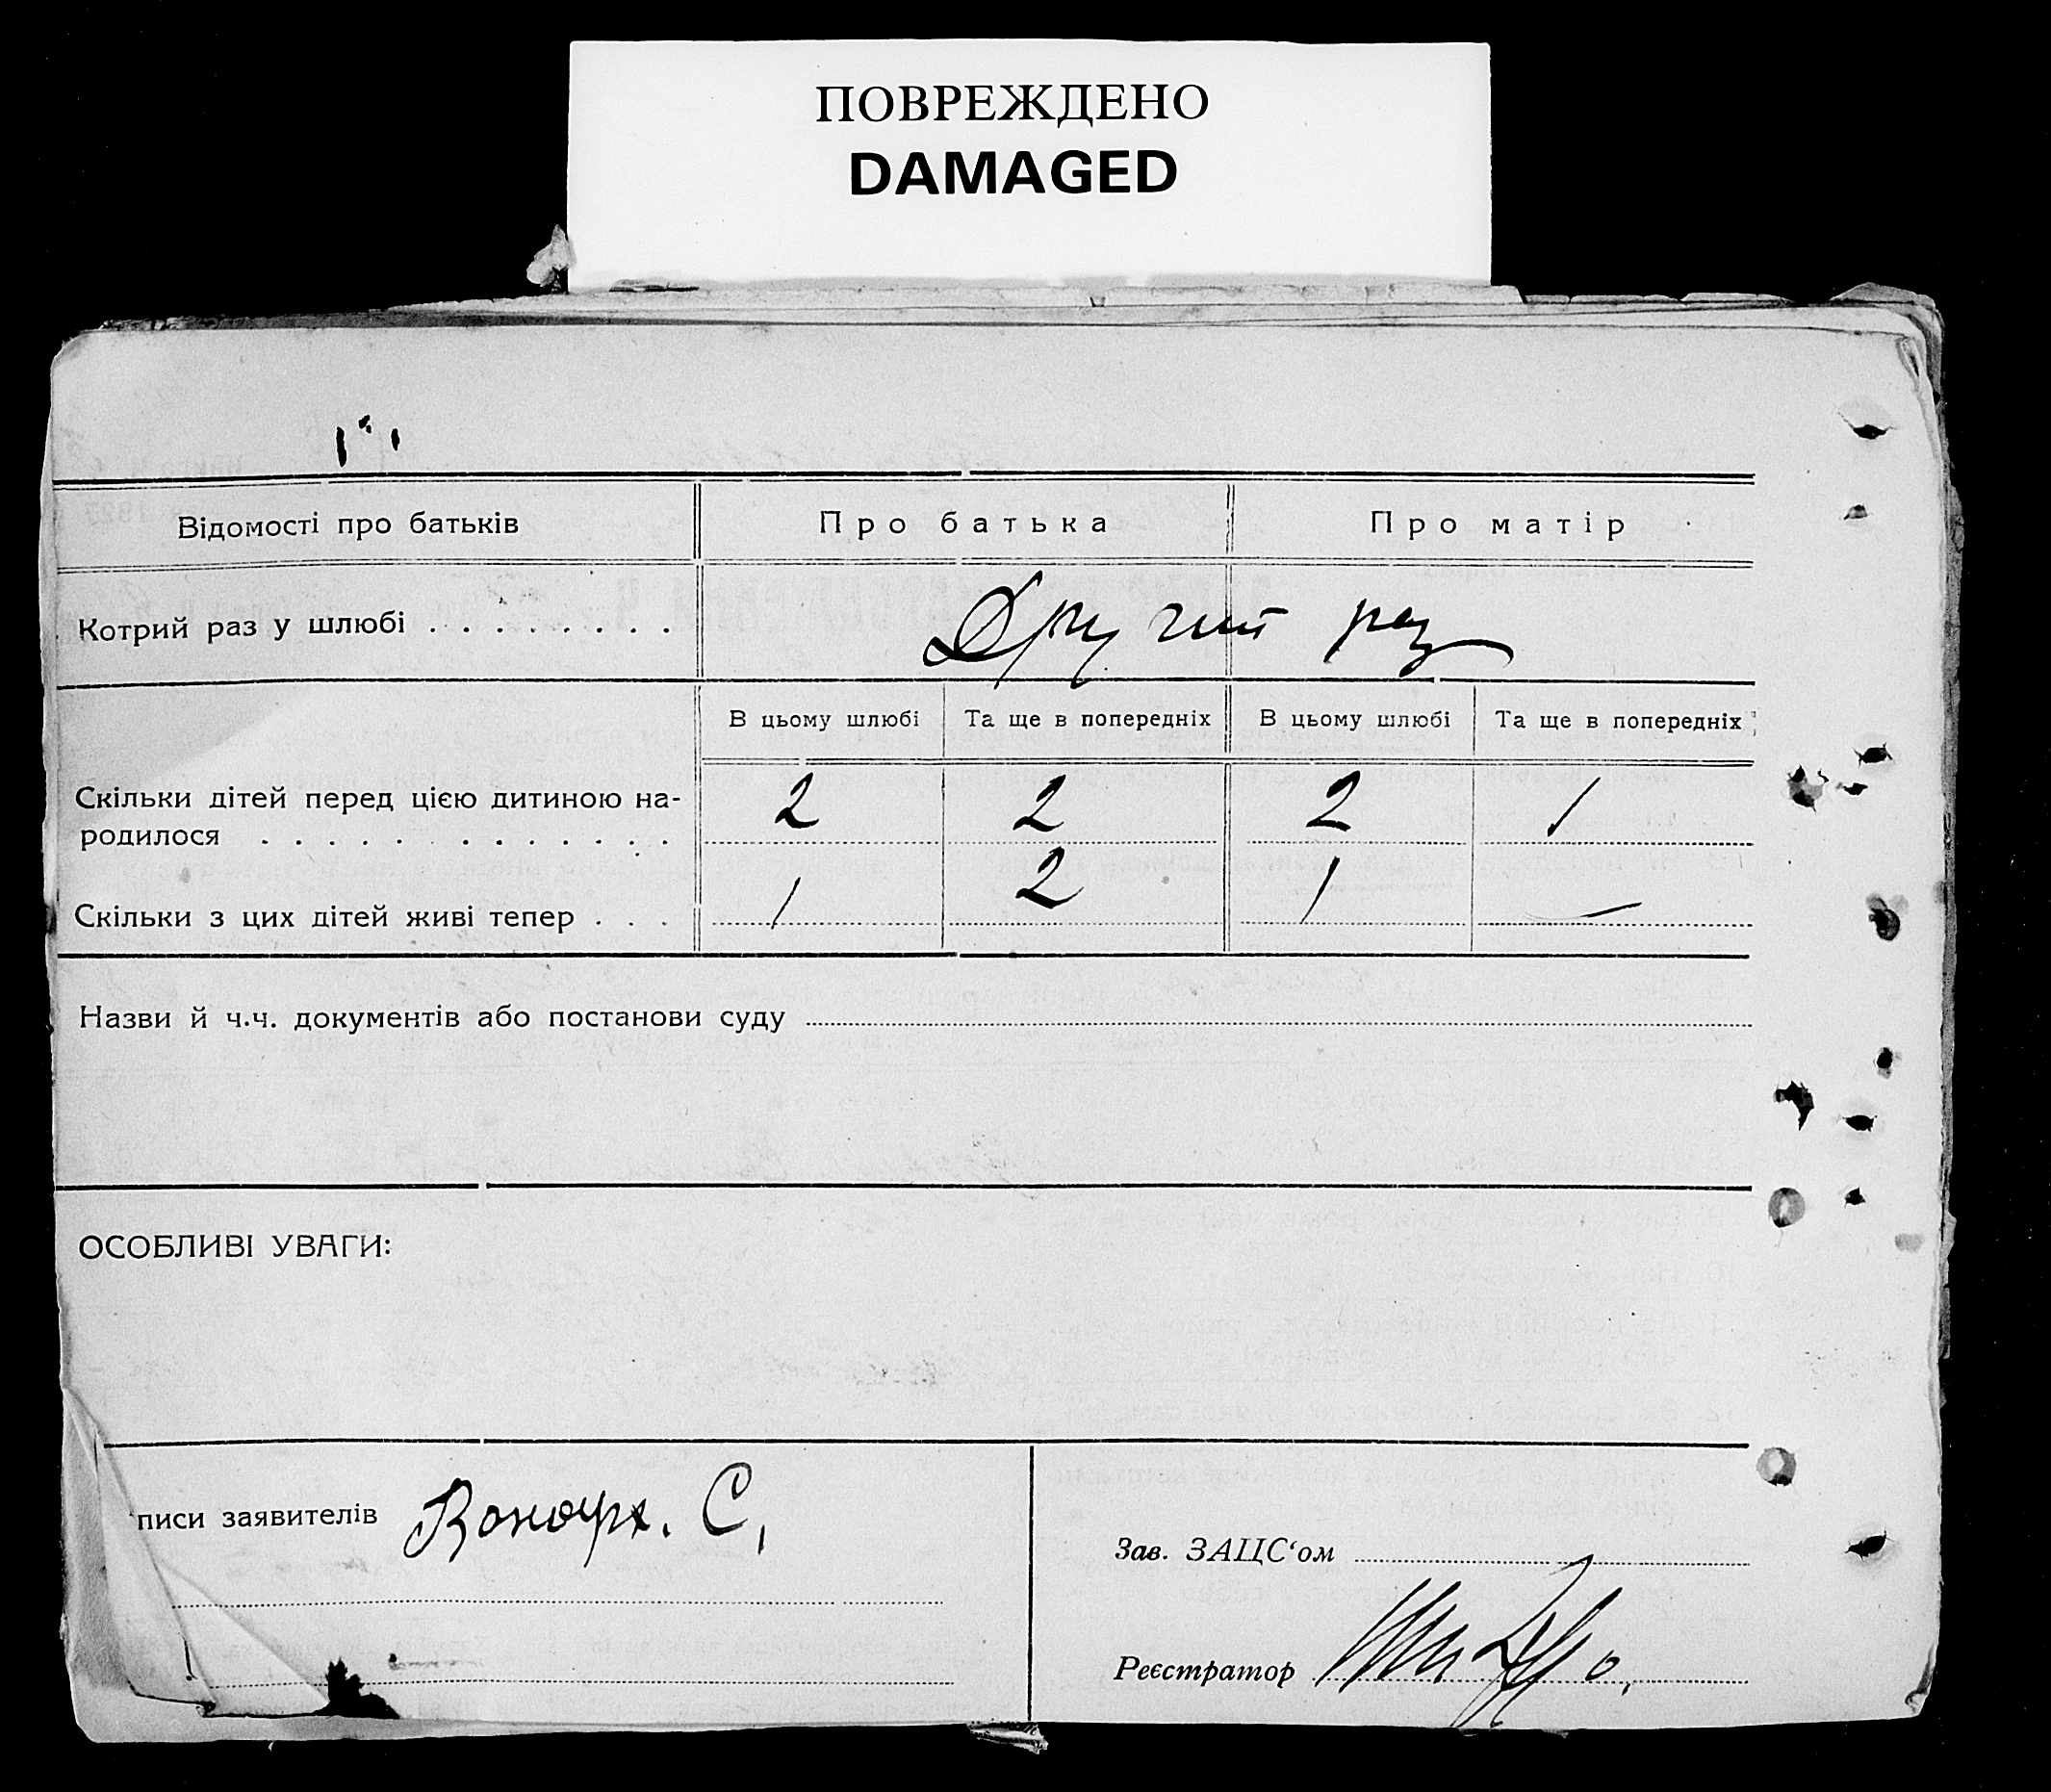 ПОВРЕЖДЕНО
DAMAGED
Відомості про батьків
Про батька
Про матір
Котрий раз у шлюбі . . . . . . . .
Другий раз
В цьому шлюбі
Та ще в попередніх
В цьому шлюбі
Та ще в попередніх
Скільки дітей перед цією дитиною на-
родилося . . . . . . . . . . . . .
2
2
2
1
Скільки з цих дітей живі тепер . . .
1
2
1
—
Назви й ч.ч. документів або постанови суду
ОСОБЛИВІ УВАГИ:
писи заявителів
С,
Зав. ЗАЦС‘ом
Реєстратор